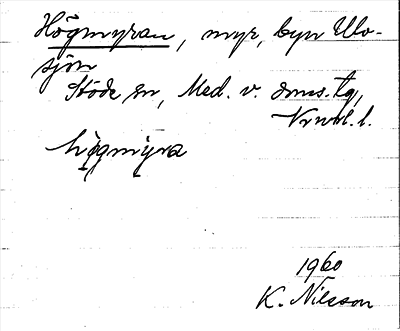 Högmyran, myr, byn Ulo-
sjön
Stöde sn, Med. v. doms. tg,
Vrnrl. l.
högmyra
1960
K. Nilsson